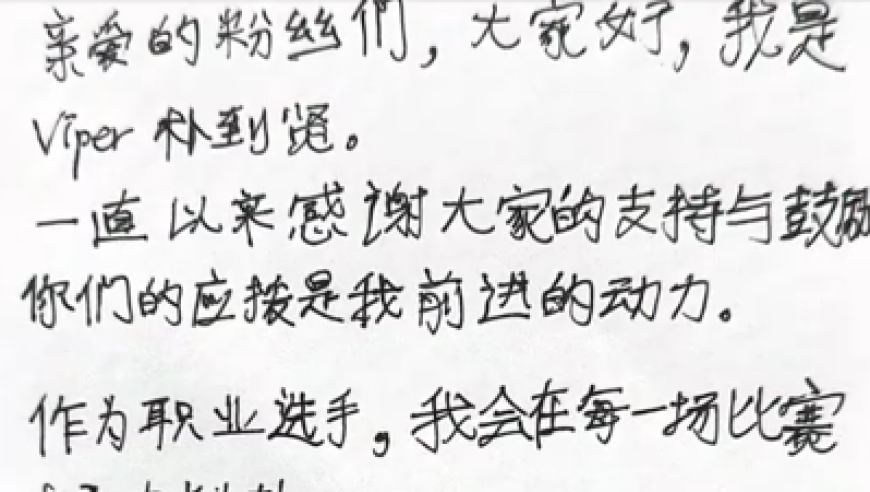 亲爱的粉丝们，大家好，我是
Viper 朴到贤。
一直以来感谢大家的支持与鼓励
你们的应援是我前进的动力。
作为职业选手，我会在每一场比赛